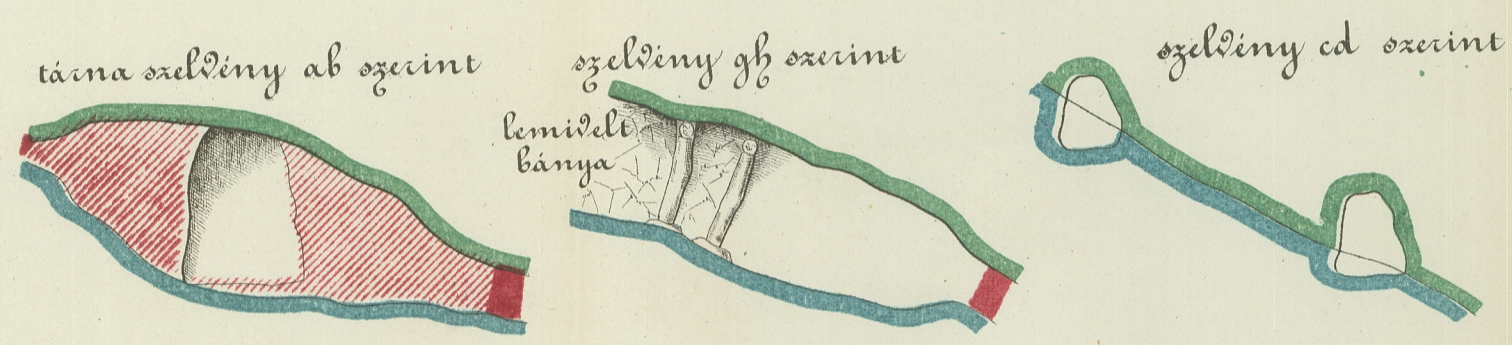 tárna szelvény ab szerint
szelvény gh szerint
lemivelt
bánya
szelvény cd szerint